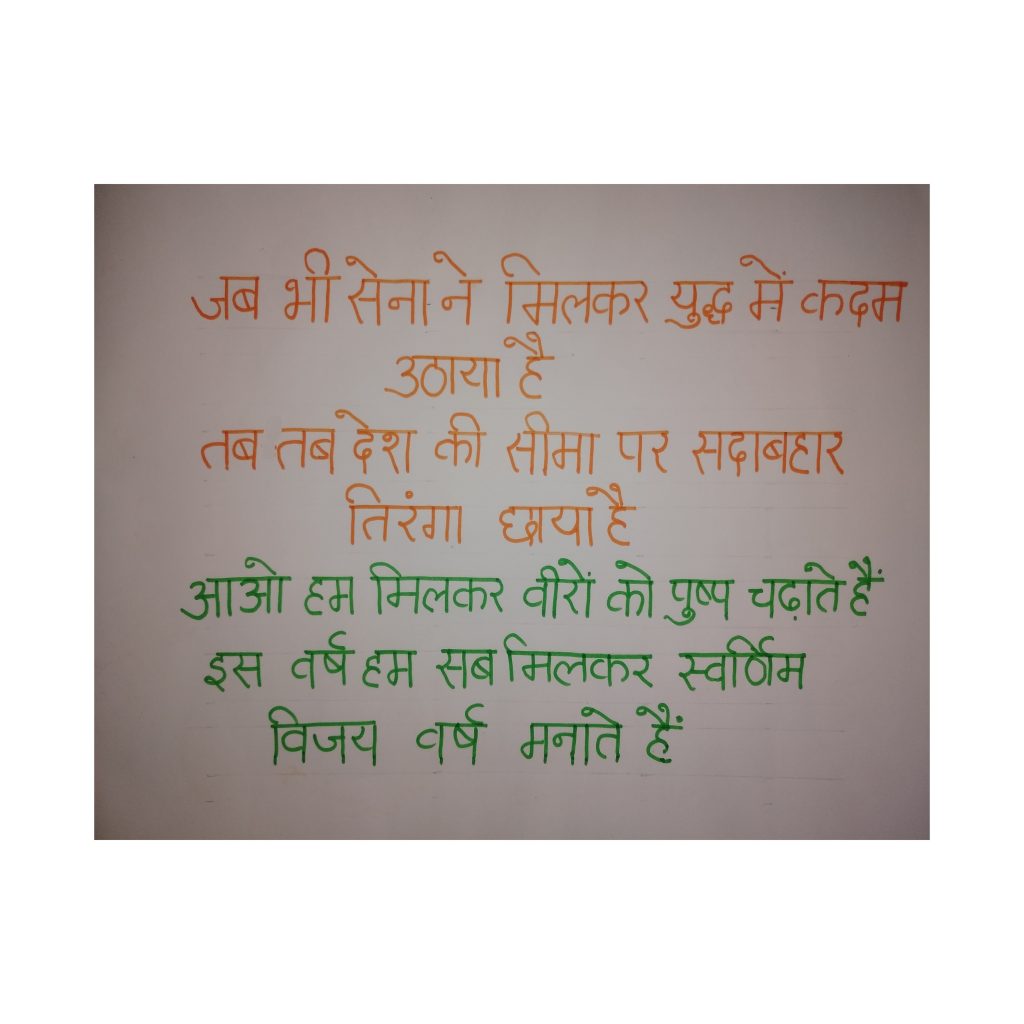 जब भी सेना ने मिलकर युद्ध में कदम
उठाया है
तब तब देश की सीमा पर सदाबहार
तिरंगा छाया है
आओ हम मिलकर वीरों को पुष्प चढ़ाते हैं
इस वर्ष हम सब मिलकर स्वर्णिम
विजय वर्ष मनाते हैं